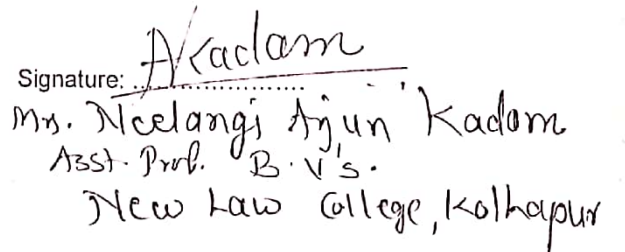 AKadam
Signature: ........................
Mrs. Neelangi Arjun Kadam
Asst. Prof. B.V's.
New Law College, Kolhapur